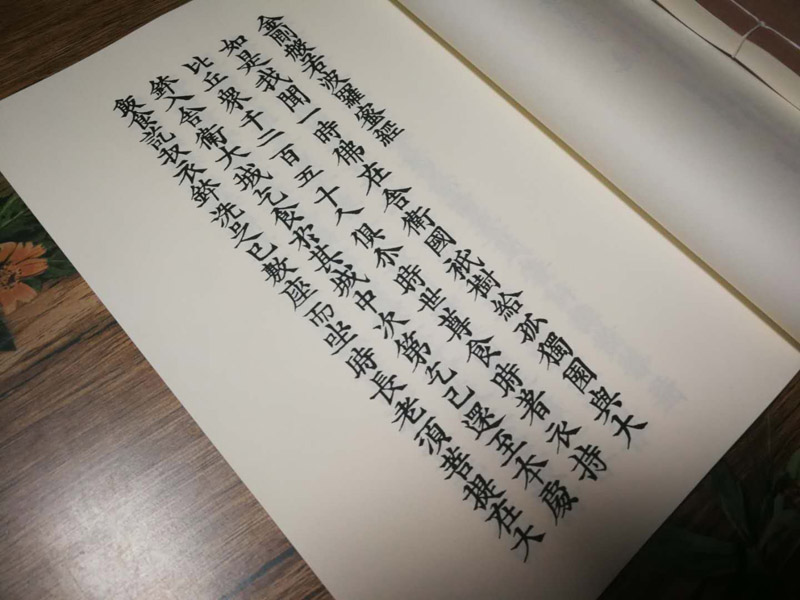 金剛般若波羅蜜經
如是我聞一時佛在舍衛國祇樹給孤獨園與大
比丘衆千二百五十人俱尒時世尊食時著衣持
鉢入舍衛大城乞食扵其城中次第乞已還至本處
飯食訖収衣鉢洗足已敷座而坐時長老須菩提在大